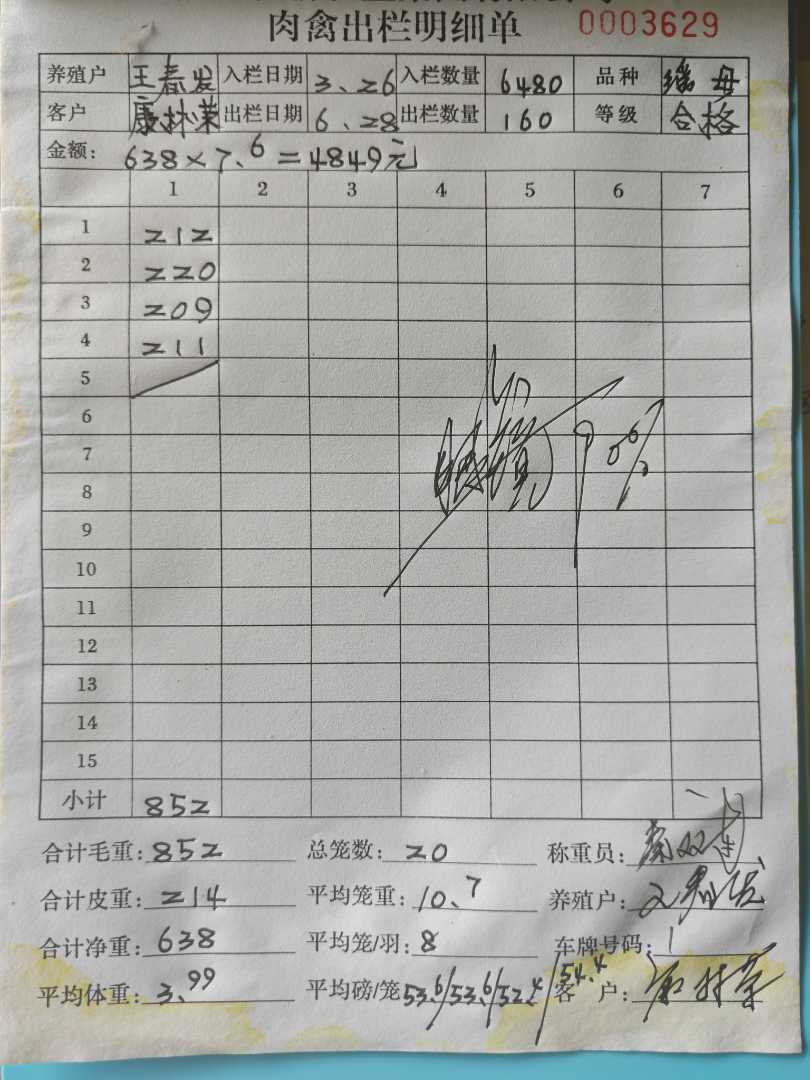 肉禽出栏明细单 0003629
养殖户 王春发 入栏日期 3、26 入栏数量 6480 品种 母
客户 康林荣 出栏日期 6、28 出栏数量 160 等级 合格
金额: 638×7.6=4849元
1 2 3 4 5 6 7
1 212
2 220
3 209
4 211
5
6
7 70%
8
9
10
11
12
13
14
15
小计 852
合计毛重: 852 总笼数: 20 称重员:
合计皮重: 214 平均笼重: 10.7 养殖户:
合计净重: 638 平均笼/羽: 8 车牌号码: 1
平均体重: 3.99 平均磅/笼 53.6/53.6/52.4/54.4 客户: